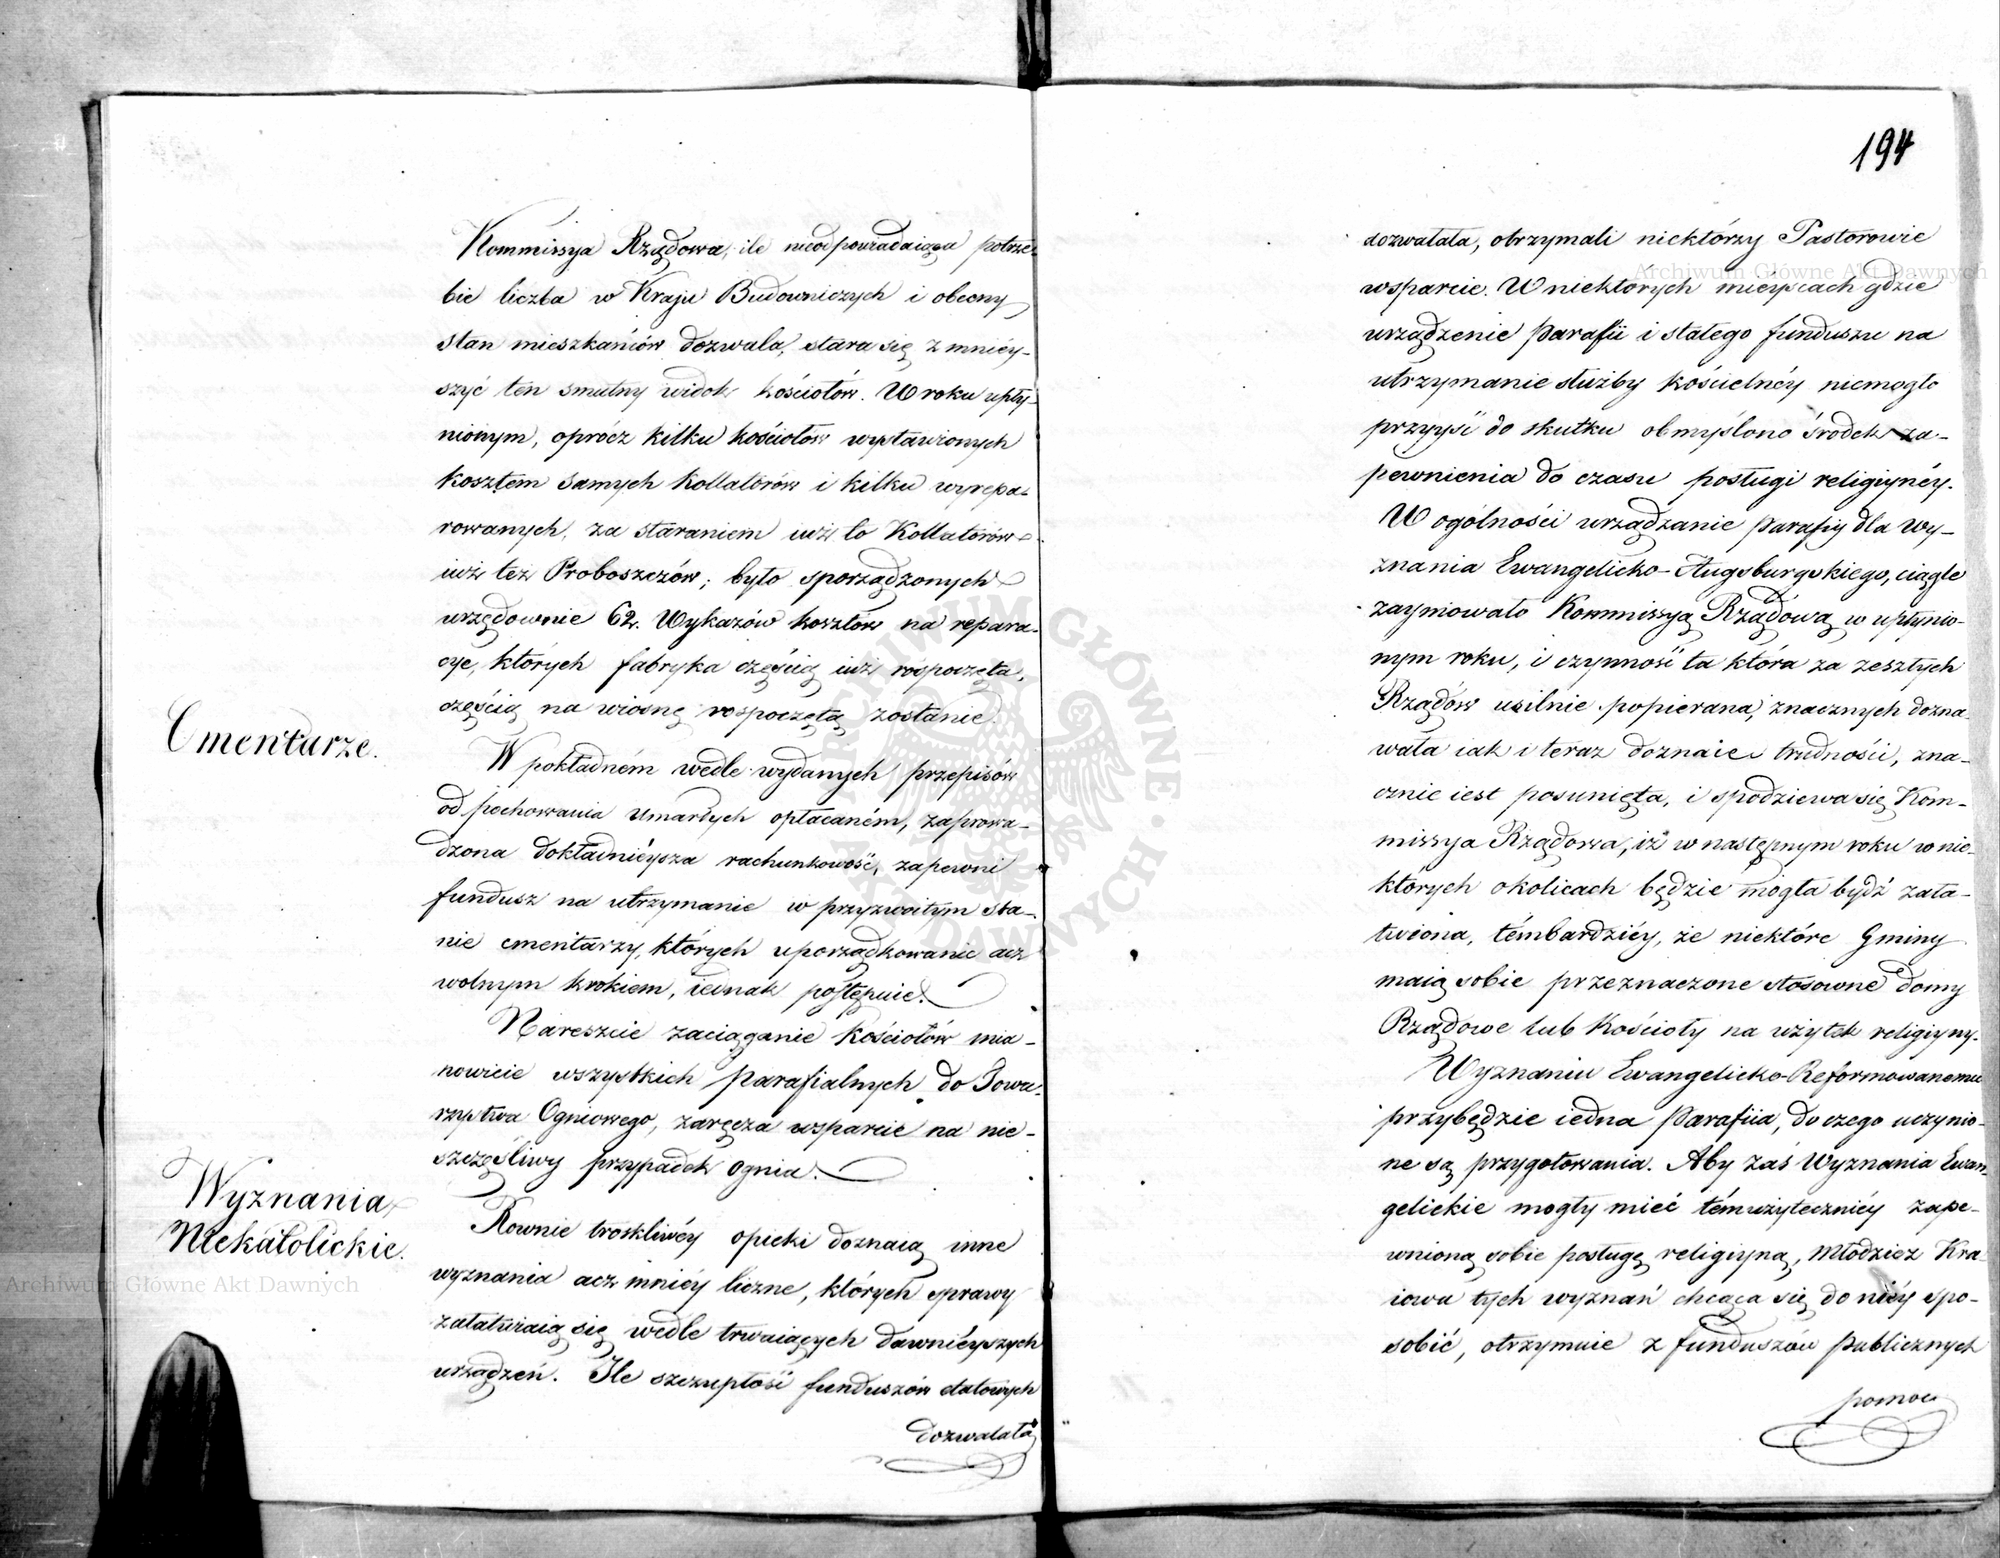 Kommissya Rządowa, ile nieodpowiadaiąca potrze-
bie liczba w Kraju Budowniczych i obecny
stan mieszkańców dozwala, stara się zmniéy-
szyć ten smutny widok kościołów. W roku upły-
nionym, oprócz kilku kościołów wystawionych
kosztem samych Kollatorów i kilku wyrepa-
rowanych, za staraniem iuż to Kollatorów
iuż też Proboszczów; było sporządzonych
urzędownie 62. Wykazów kosztów na repara-
cye, których fabryka częścią iuż rospoczęta,
częścią na wiosnę rospoczętą zostanie.
Cmentarze.
W pokładném wedle wydanych przepisów
od pochowania umarłych opłacaném, zaprowa-
dzona dokładnieysza rachunkowość, zapewni
fundusz na utrzymanie w przyzwoitym sta-
nie cmentarzy, których uporządkowanie acz
wolnym krokiem, iednak postępuie.
Nareszcie zaciąganie Kościołów mia-
nowicie wszystkich parafialnych do Towa-
rzystwa Ogniowego, zaręcza wsparcie na nie-
szczęśliwy przypadek ognia.
Wyznania
Niekatolickie.
Rownie troskliwéy opieki doznaią inne
wyznania acz mniéy liczne, których sprawy
załatwiaią się wedle trwaiących dawniéyszych
urządzeń. Ile szczupłość funduszów etatowych
dozwalała
194
dozwalała, otrzymali niektórzy Pastorowie
wsparcie. W niektórych mieyscach gdzie
urządzenie Parafii i stałego funduszu na
utrzymanie służby kościelnéy niemogło
przyyść do skutku obmyślono środek za-
pewnienia do czasu posługi religiynéy.
W ogólności urządzanie parafiy dla Wy-
znania Ewangelicko-Augsburgskiego, ciągle
zaymowało Kommissyą Rządową w upłynio-
nym roku, i czynność ta która za zeszłych
Rządów usilnie popierana, znacznych dozna-
wała iak i teraz doznaie trudności, zna-
cznie iest posunięta, i spodziewa się Kom-
missya Rządowa, iż w następnym roku w nie-
których okolicach będzie mogła bydź zała-
twiona, témbardziéy, że niektóre Gminy
maią sobie przeznaczone stosowne domy
Rządowe lub Kościoły na użytek religiyny.
Wyznaniu Ewangelicko-Reformowanemu
przybędzie iedna Parafiia, do czego uczynio-
ne są przygotowania. Aby zaś Wyznania Ewan-
gelickie mogły mieć tém użyteczniéy zape-
wnioną sobie posługę religiyną, Młodzież Kra-
iowa tych wyznań chcąca się do niéy spo-
sobić, otrzymuie z funduszów Publicznych
pomoc
Archiwum Główne Akt Dawnych
Archiwum Główne Akt Dawnych
ARCHIWUM GŁÓWNE AKT DAWNYCH